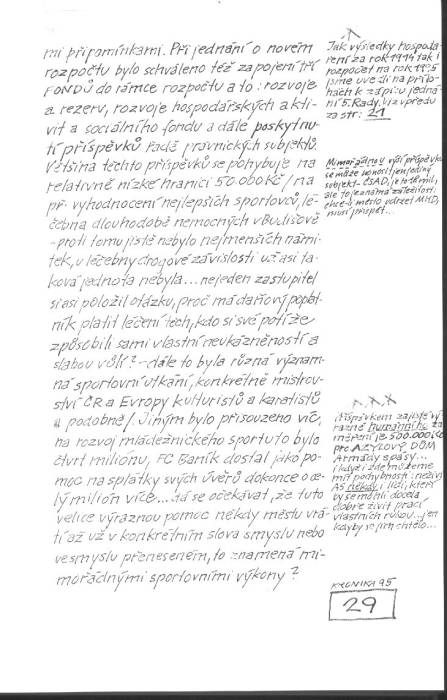 mi připomínkami. Při jednání o novém
rozpočtu bylo schváleno též zapojení tří
FONDŮ do rámce rozpočtu a to: rozvoje
a rezerv, rozvoje hospodářských akti-
vit a sociálního fondu a dále poskytnu-
tí příspěvků řadě právnických subjektů.
Většina těchto příspěvků se pohybuje na
relativně nízké hranici 50.000 Kč / na
př. vyhodnocení nejlepších sportovců, lé-
čebna dlouhodobě nemocných v Budišově
- proti tomu jistě nebylo nejmenších námi-
tek, u léčebny drogové závislosti už asi ta-
ková jednota nebyla... nejeden zastupitel
si asi položil otázku, proč má daňový poplat-
ník platit léčení těch, kdo si své potíže
způsobili sami vlastní neukázněností a
slabou vůlí? - dále to byla různá význam-
ná sportovní utkání, konkrétně mistrov-
ství ČR a Evropy kulturistů a karatistů
a podobně/. Jiným bylo přisouzeno víc,
na rozvoj mládežnického sportu to bylo
čtvrt miliónu, FC Baník dostal jako po-
moc na splátky svých úvěrů dokonce o ce-
lý milión více... dá se očekávat, že tuto
velice výraznou pomoc někdy městu vrá-
tí až už v konkrétním slova smyslu nebo
ve smyslu přeneseném, to znamená mi-
mořádnými sportovními výkony?
Jak výsledky hospoda-
ření za rok 1994 tak i
rozpočet na rok 1995
jsme uvedli na přílo-
hách k zápisu jedná-
ní 5. Rady, viz vpředu
za str: 21
Mimořádnou výší příspěvku
se může honosit jen jediný
subjekt - ČSAD, je to
ale to je známá záležitost:
chce-li město udržet MHD,
musí přispět...
x x x
Příspěvkem zajisté vý-
razně humánního za-
měření je 500.000 Kč
pro AZYLOVÝ DŮM
Armády spásy...
i když i zde můžeme
mít pochybnosti:
AS někdy i lidi, kteří
by se mohli docela
dobře živit prací
vlastních rukou... jen
kdyby se jim chtělo...
KRONIKA 95
29